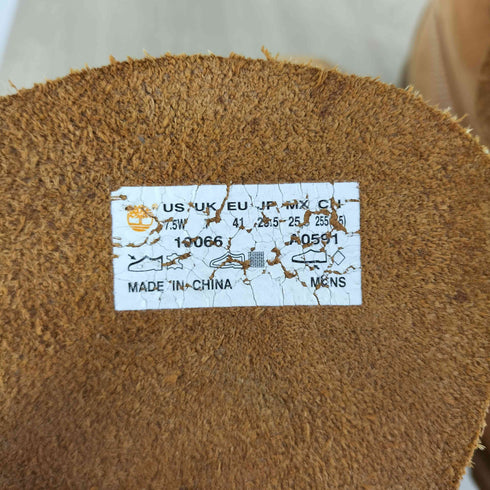 US UK EU JP MX CN
7.5W 41 25.5 25.5 255
10066 A0591
MADE IN CHINA MENS